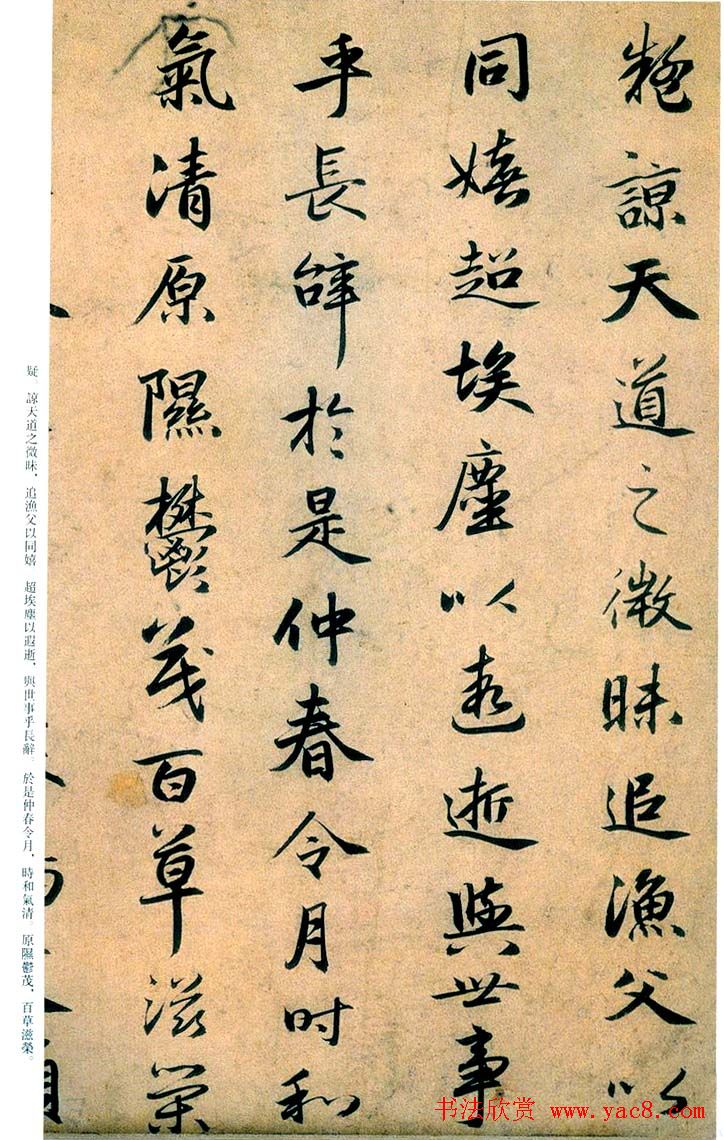 疑諒天道之微昧追漁父以
同嬉超埃塵以遐逝與世事
乎長辭於是仲春令月时和
氣清原隰鬱茂百草滋榮
疑。諒天道之微昧，追漁父以同嬉　超埃塵以遐逝，與世事乎長辭。於是仲春令月，時和氣清。原隰鬱茂，百草滋榮。
书法欣赏 www.yac8.com